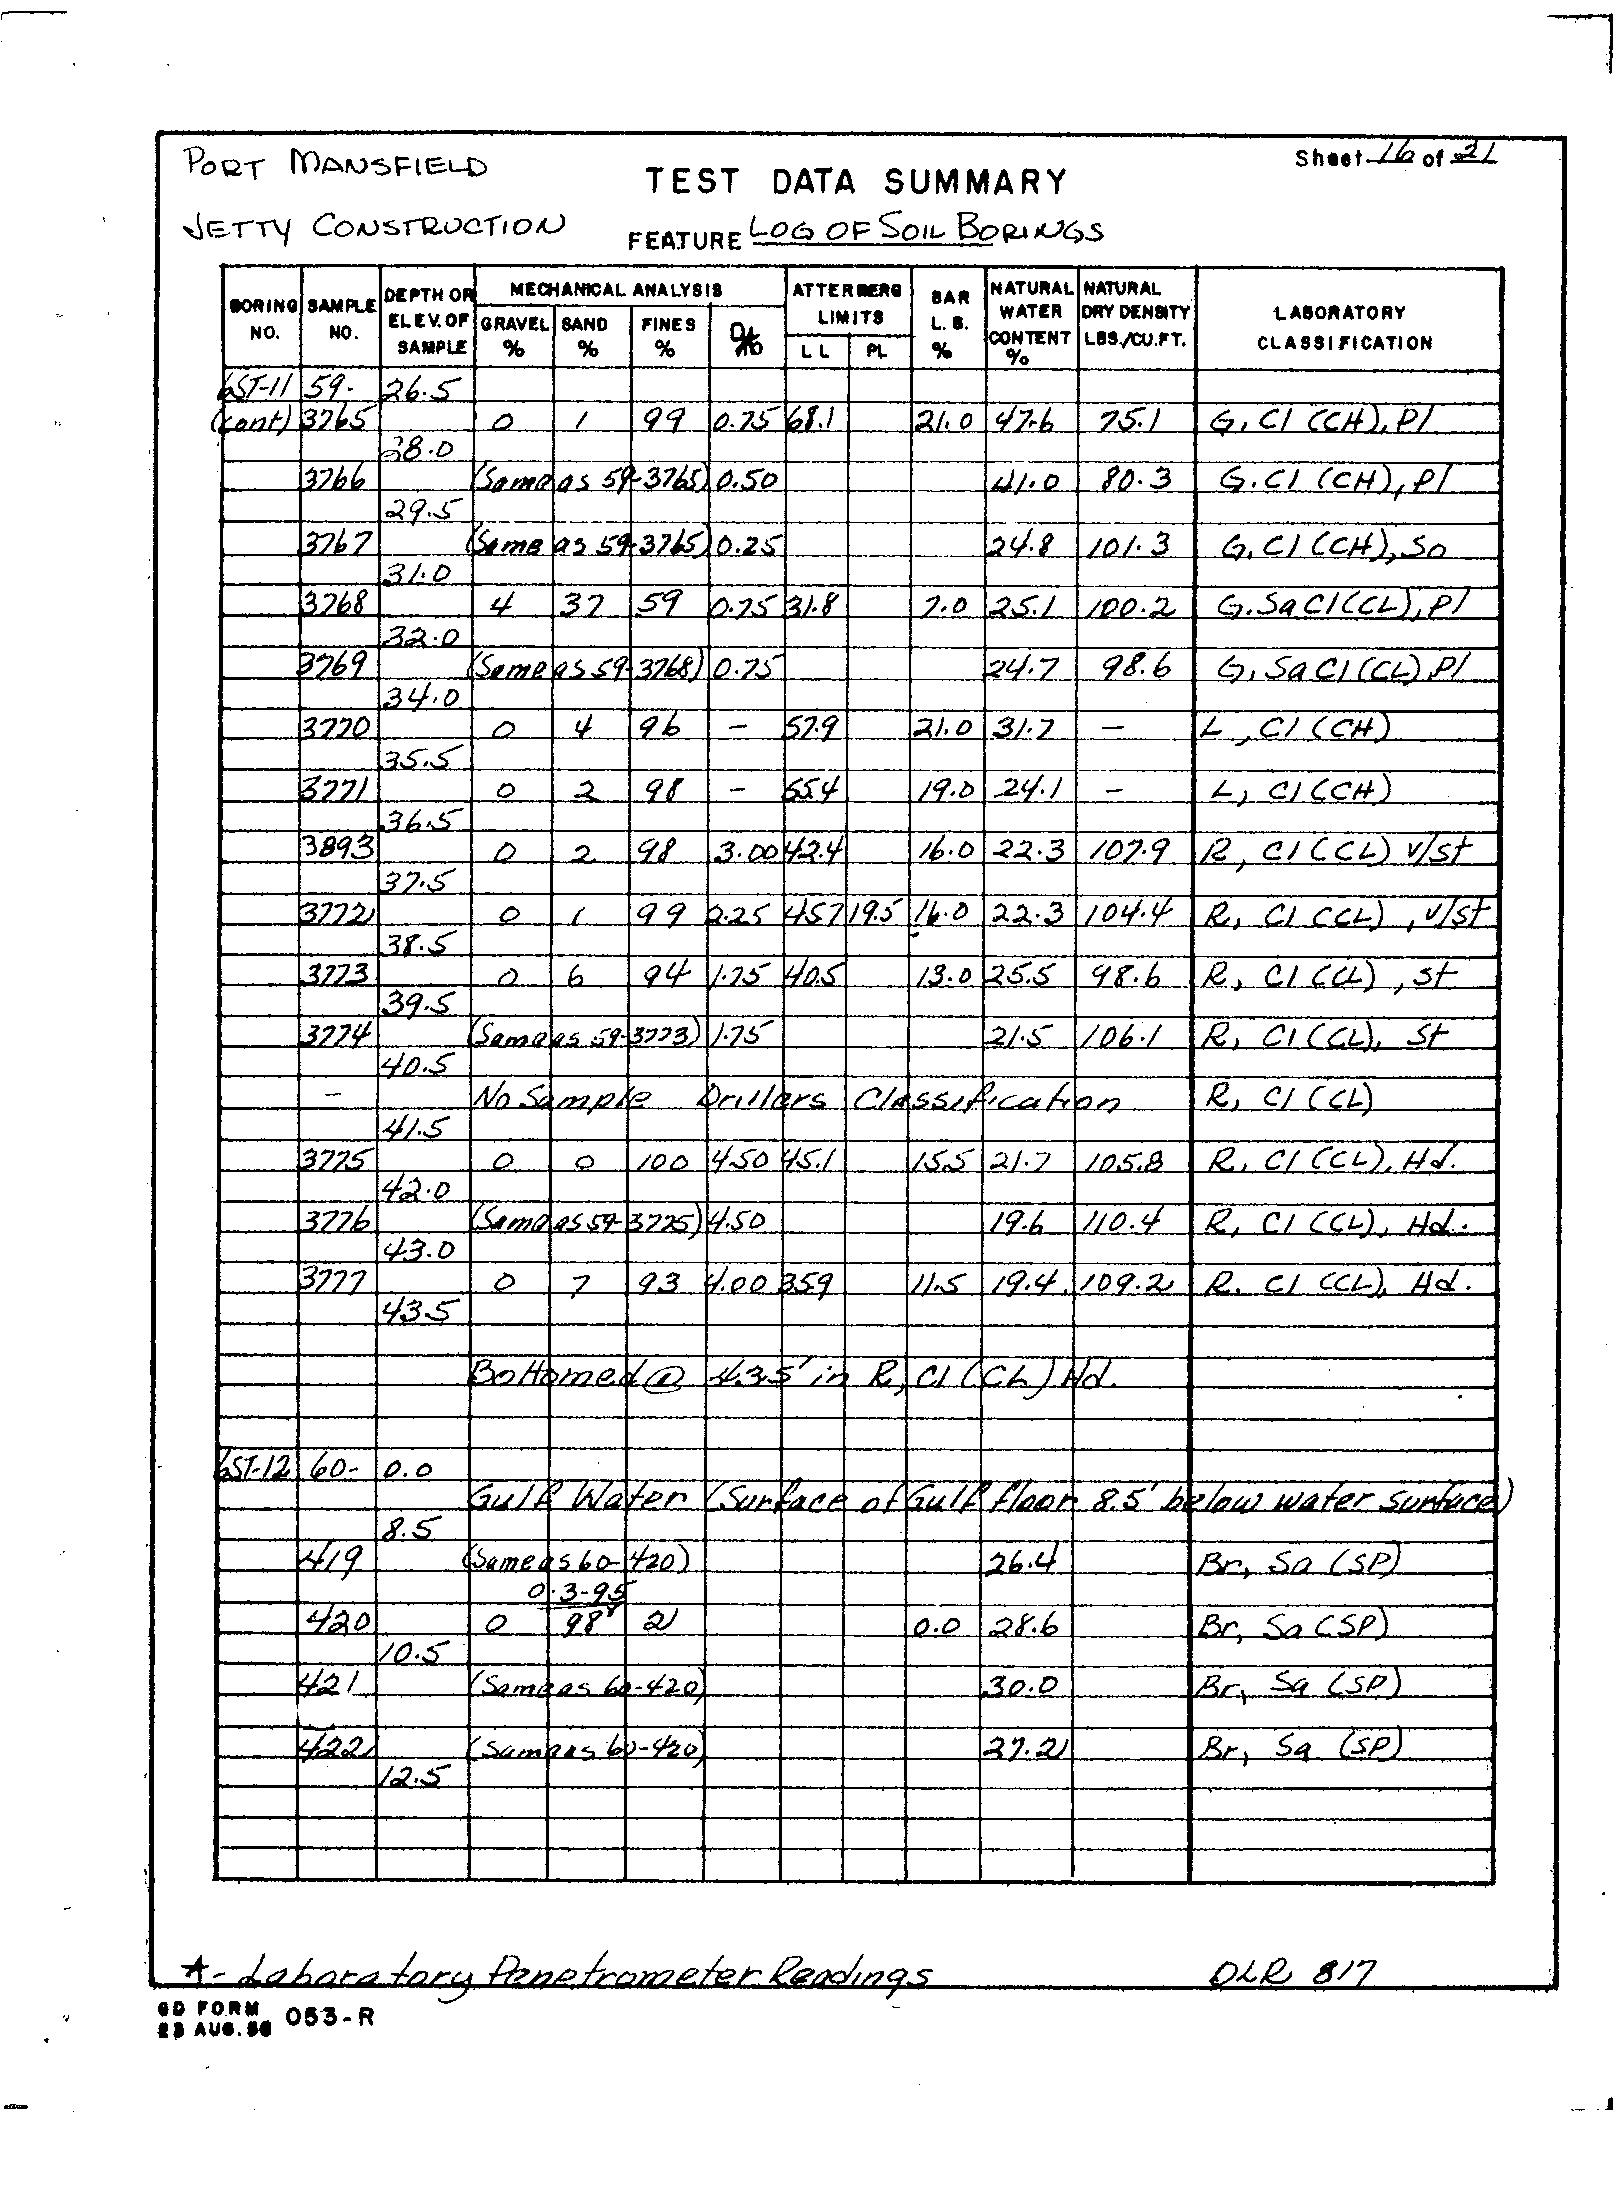 PORT MANSFIELD
Sheet 16 of 21
TEST DATA SUMMARY
JETTY CONSTRUCTION
FEATURE LOG OF SOIL BORINGS
BORING NO. SAMPLE NO. DEPTH OR ELEV. OF SAMPLE MECHANICAL ANALYSIS GRAVEL % SAND % FINES % ATTERBERG LIMITS LL PL BAR L. S. % NATURAL WATER CONTENT % NATURAL DRY DENSITY LBS./CU.FT. LABORATORY CLASSIFICATION
6ST-11 59- 26.5
(cont) 3765 0 1 99 0.75 68.1 21.0 47.6 75.1 G, Cl (CH), Pl
28.0
3766 (Same as 59-3765) 0.50 41.0 80.3 G. Cl (CH), Pl
29.5
3767 (Same as 59-3765) 0.25 24.8 101.3 G, Cl (CH), So
31.0
3768 4 37 59 0.75 31.8 7.0 25.1 100.2 G. Sa Cl (CL), Pl
32.0
3769 (Same as 59-3768) 0.75 24.7 98.6 G, Sa Cl (CL) Pl
34.0
3770 0 4 96 - 57.9 21.0 31.7 - L, Cl (CH)
35.5
3771 0 2 98 - 55.4 19.0 24.1 - L, Cl (CH)
36.5
3893 0 2 98 3.00 42.4 16.0 22.3 107.9 R, Cl (CL) v/st
37.5
3772 0 1 99 2.25 45.7 19.5 16.0 22.3 104.4 R, Cl (CL), v/st
38.5
3773 0 6 94 1.75 40.5 13.0 25.5 98.6 R, Cl (CL), st
39.5
3774 (Same as 59-3773) 1.75 21.5 106.1 R, Cl (CL), St
40.5
- No Sample Drillers Classification R, Cl (CL)
41.5
3775 0 0 100 4.50 45.1 15.5 21.7 105.8 R, Cl (CL), Hd.
42.0
3776 (Same as 59-3775) 4.50 19.6 110.4 R, Cl (CL), Hd.
43.0
3777 0 7 93 4.00 35.9 11.5 19.4 109.2 R. Cl (CL), Hd.
43.5
Bottomed @ 43.5' in R, Cl (CL) Hd.
6ST-12 60- 0.0
Gulf Water (Surface of Gulf floor 8.5' below water surface)
8.5
419 (Same as 60-420) 26.4 Br, Sa (SP)
0-3-95
420 0 98 2 0.0 28.6 Br, Sa (SP)
10.5
421 (Same as 60-420) 30.0 Br, Sa (SP)
422 (Same as 60-420) 27.2 Br, Sa (SP)
12.5
*- Laboratory Penetrometer Readings
DLR 817
GD FORM 053-R
23 AUG. 56